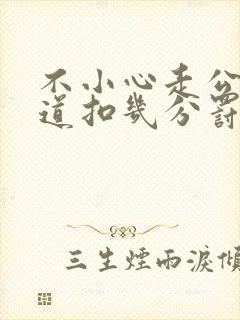 不小心走公
道扣幾分罰
三生煙雨淚傾